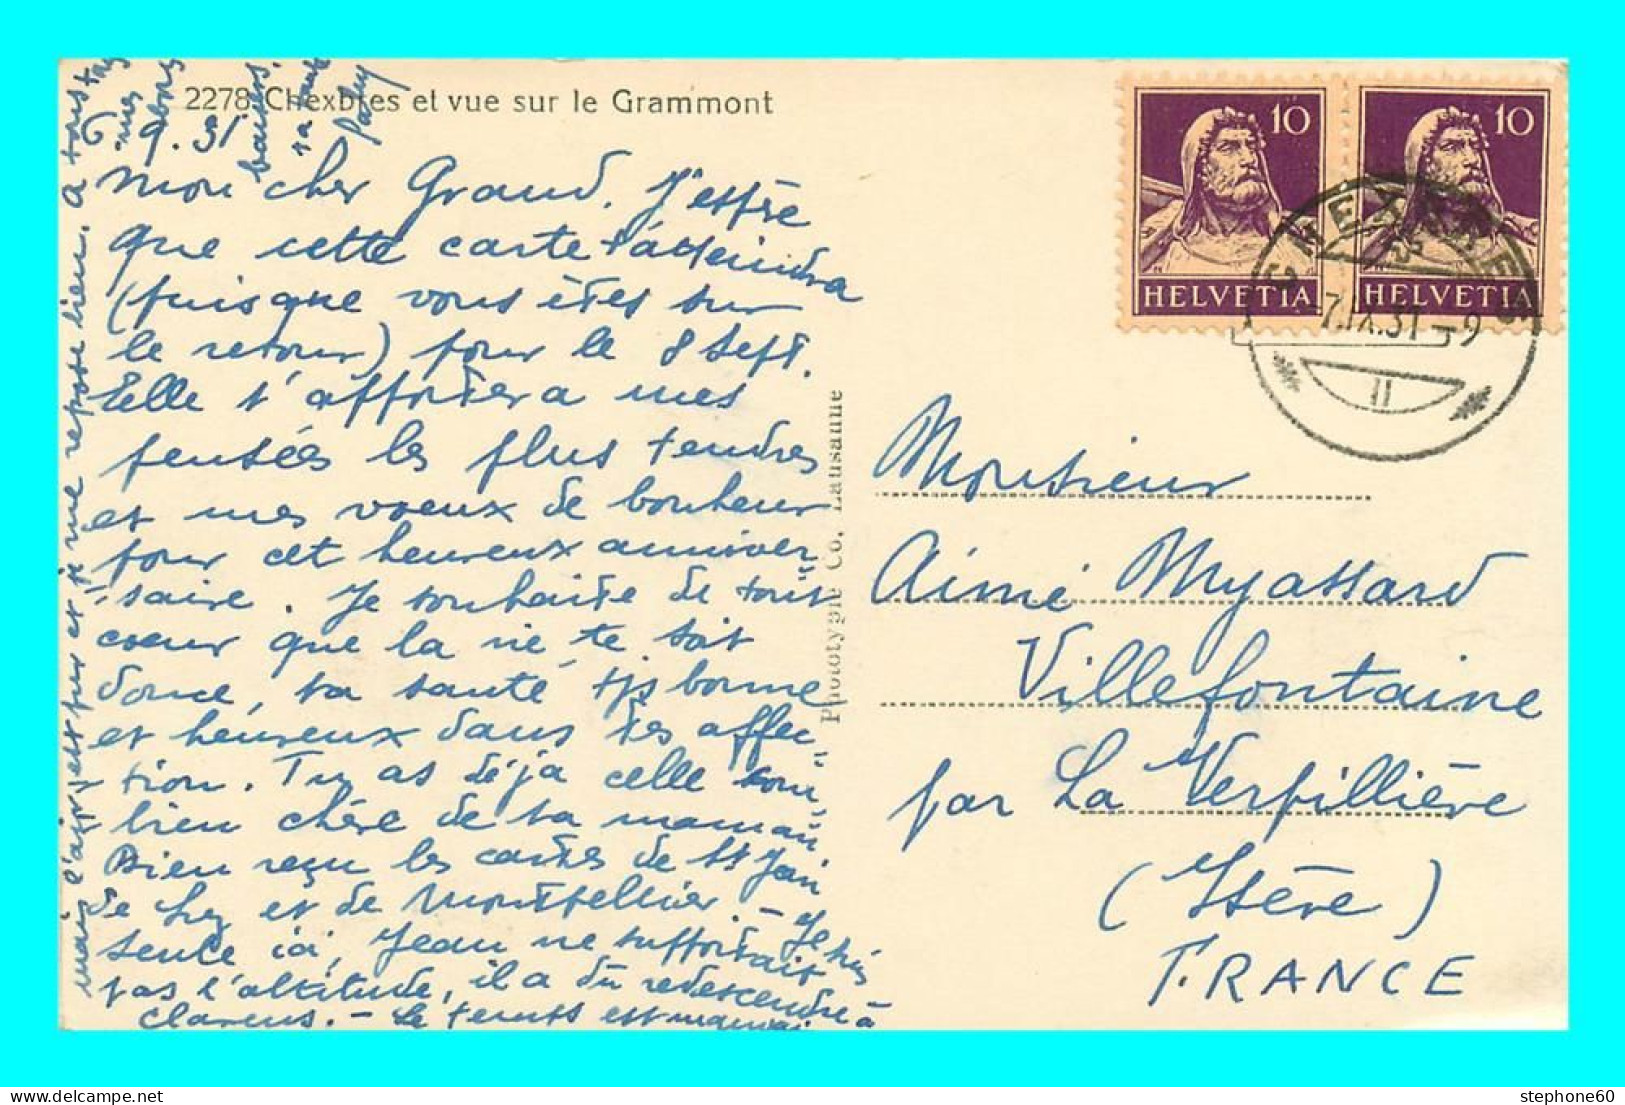 2278 Chexbres et vue sur le Grammont
6 9.31
mon cher Grand. J'espère
que cette carte t'atteindra
(puisque vous êtes sur
le retour) pour le 8 sept.
Elle t'apportera mes
pensées les plus tendres
et mes voeux de bonheur
pour cet heureux anniver-
saire. Je souhaite de tout
coeur que la vie te soit
douce, ta santé tjs bonne
et heureux dans tes affec-
tion. Tu as déjà celle com-
bien chère de ta maman.
Bien reçu les cartes de St Jean
de Luz et de Montpellier. - Je suis
seule ici, Jean ne supportait
pas l'altitude, il a dû redescendre à
Clarens. - Le temps est mauvais
mais l'air est pur et je me repose bien. A tous
mes
baisers.
ta
HELVETIA 10
HELVETIA 10
CHEXBRES
7.IX.31-9
Phototypie Co. Lausanne
Monsieur
Aimé Myassard
Villefontaine
par La Verpillière
(Isère)
FRANCE
stephone60